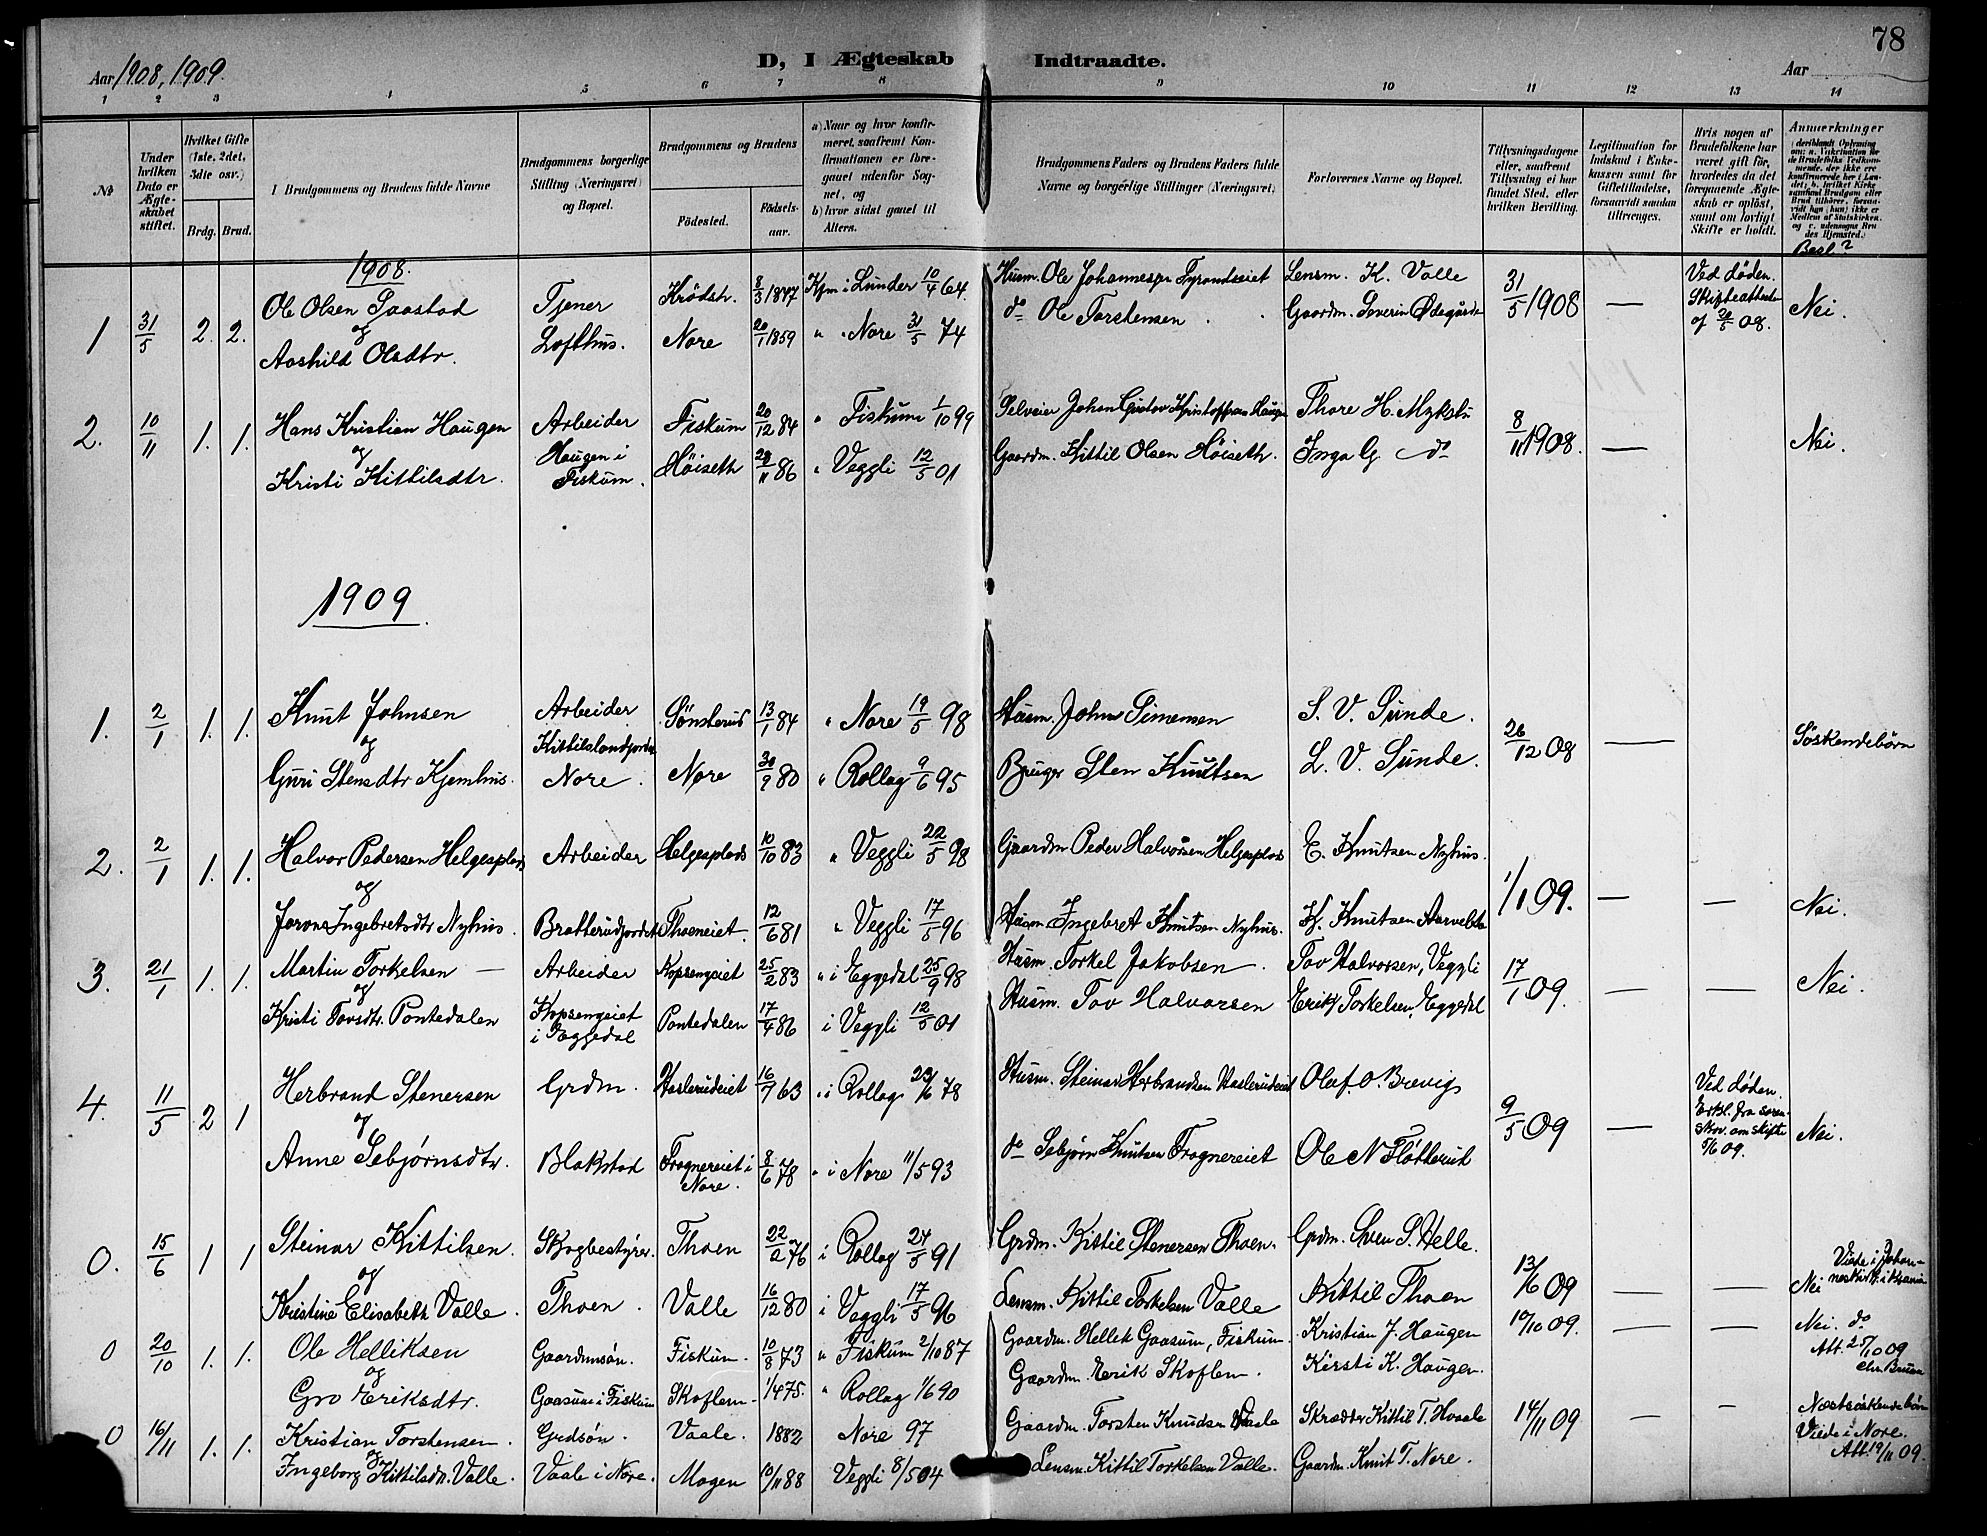 78
Aar 1908, 1909.
D, I Ægteskab Indtraadte.
Aar
1 2 3 4 5 6 7 8 9 10 11 12 13 14
No
Under hvilken Dato er Ægteskabet stiftet.
Hvilket Gifte (1ste, 2det, 3die osv.)
Brdg. Brud.
I Brudgommens og Brudens fulde Navne
Brudgommens borgerlige Stilling (Næringsvei) og Bopæl.
Brudgommens og Brudens
Fødested. Fødselsaar.
a) Naar og hvor konfirmeret, saafremt Konfirmationen er foregaaet udenfor Sognet, og
b) hvor sidst gaaet til Alters.
Brudgommens Faders og Brudens Faders fulde Navne og borgerlige Stillinger (Næringsvei)
Forlovernes Navne og Bopæl.
Tillysningsdagene eller, saafremt Tillysning ei har fundet Sted, efter hvilken Bevilling.
Legitimation for Indskud i Enkekassen samt for Giftetilladelse, forsaavidt saadan tiltrænges.
Hvis nogen af Brudefolkene har været gift før, hvorledes da det foregaaende Ægteskab er opløst, samt om lovligt Skifte er holdt.
Anmærkninger
Besl?
1908.
1 31/5 2. 2. Ole Olsen Saastad Tjener Krødsh. 8/3 1847 Kfm i Lunder 10/4 64. Husm. Ole Johannesen Lensm. K. Valle 31/5 1908 — Ved døden. Nei.
og
Aashild Olsdtr. Lofthus. Nore 20/1 1859 " Nore 31/5 74 do Ole Torstensen Gaardm. Severin Skifteattest af 20/5 08.
2. 10/11 1. 1. Hans Kristian Haugen Arbeider Fiskum 20/12 84 " Fiskum 1/10 99 Johan Gustav Kristoffersen Haugen Thore H. Mykstu 8/11 1908. — Nei.
og
Kristi Kittilsdtr. Haugen i Fiskum. Høiseth 28/11 86 " Veggli 12/5 01 Gaardm. Kittil Olsen Høiseth. Inga G. do
1909
1. 2/1 1. 1. Knut Johnsen Arbeider Sønsterud 13/1 84 " Nore 19/5 98 Husm. John Simensen S. V. Sunde. 26/12 08 — Søskendebørn
og
Guri Stensdtr Kjemhus. Nore. Nore 30/9 80 " Rollag 9/6 95 Bruger Sten Knutsen L. V. Sunde.
2. 2/1 1. 1. Halvor Pedersen Helgesplads Arbeider Helgesplads 10/10 83 " Veggli 22/5 98 Gaardm Peder Halvorsen Helgesplads E. Knutsen Nyhus. 1/1 09. — — Nei.
og
Jorond Ingebretsdtr Nyhus. Bratterudjordet Thoeneiet. 12/6 81 " Veggli 17/5 96 Husm Ingebret Knutsen Nyhus. K. Knutsen Aarvelta
3. 21/1 1. 1. Martin Torkelsen — Arbeider Kopsengeiet 25/2 83 " i Eggedal 25/9 98 Husm. Torkel Jakobsen —. Tov Halvorsen, Veggli 17/1 09. — — Nei.
og
Kristi Tovsdtr. Pontedalen Kopsengeiet i Eggedal Pontedalen 17/4 86 i Veggli 12/5 01 Husm. Tov Halvorsen Erik Torkelsen, Eggedal
4. 11/5 2 1 Herbrand Stenersen Grdm. Haslerudeiet 16/9 63 " i Rollag 23/6 78 Husm. Steinar Herbrandsen Haslerudeiet Olaf O. Brævig 9/5 09 — Ved døden. Nei.
og
Anne Sebjørnsdtr. Blakstad Frognereiet i Nore. 8/6 78 " i Nore 11/5 93 do Sebjørn Knutsen Frognereiet Ole N Fløtterud Erkl. fra soren- skr. om skifte 5/6 09.
0. 15/6 1 1 Steinar Kittilsen. Skogbestyrer. Thoen 22/2 76 i Rollag 24/5 91 Grdm. Kittil Stenersen Thoen. Grdm. Sven S. Helle. 13/6 09 — — Nei Viede i Johanneskirk. i Krania
og
Kristine Elisabeth Valle. Thoen. Valle 16/12 80 i Veggli 17/5 96 Lensm. Kittil Torkelsen Valle Kittil Thoen
0 20/10 1. 1. Ole Helliksen Gaardmsøn. Fiskum. 10/8 73 " Fiskum 2/10 87 Gaardm. Hellek Gaasum, Fiskum. Kristian J. Haugen 10/10 09. — — Nei. do
og
Gro Eriksdtr. Gaasum i Fiskum Skoflem 1/4 75. " Rollag 1/6 90 Gaardm. Erik Skoflem. Kirsti K. Haugen. Att. 25/10 09
0 16/11 1. 1. Kristian Torstensen. Grdsøn. Vaale. 1882 Nore 97 Gaardm. Torsten Knudsen Vaale Skrædder Kittil T. Hvaale 14/11 09 — — Næstsøskendebørn
og
Ingeborg Kittilsdtr. Valle. Vaale i Nore. Mogen 10/11 88 Veggli 8/5 04 Lensm. Kittil Torkelsen Valle. Gaardm. Knut T. Nore. Viede i Nore. Att. 19/11 09.